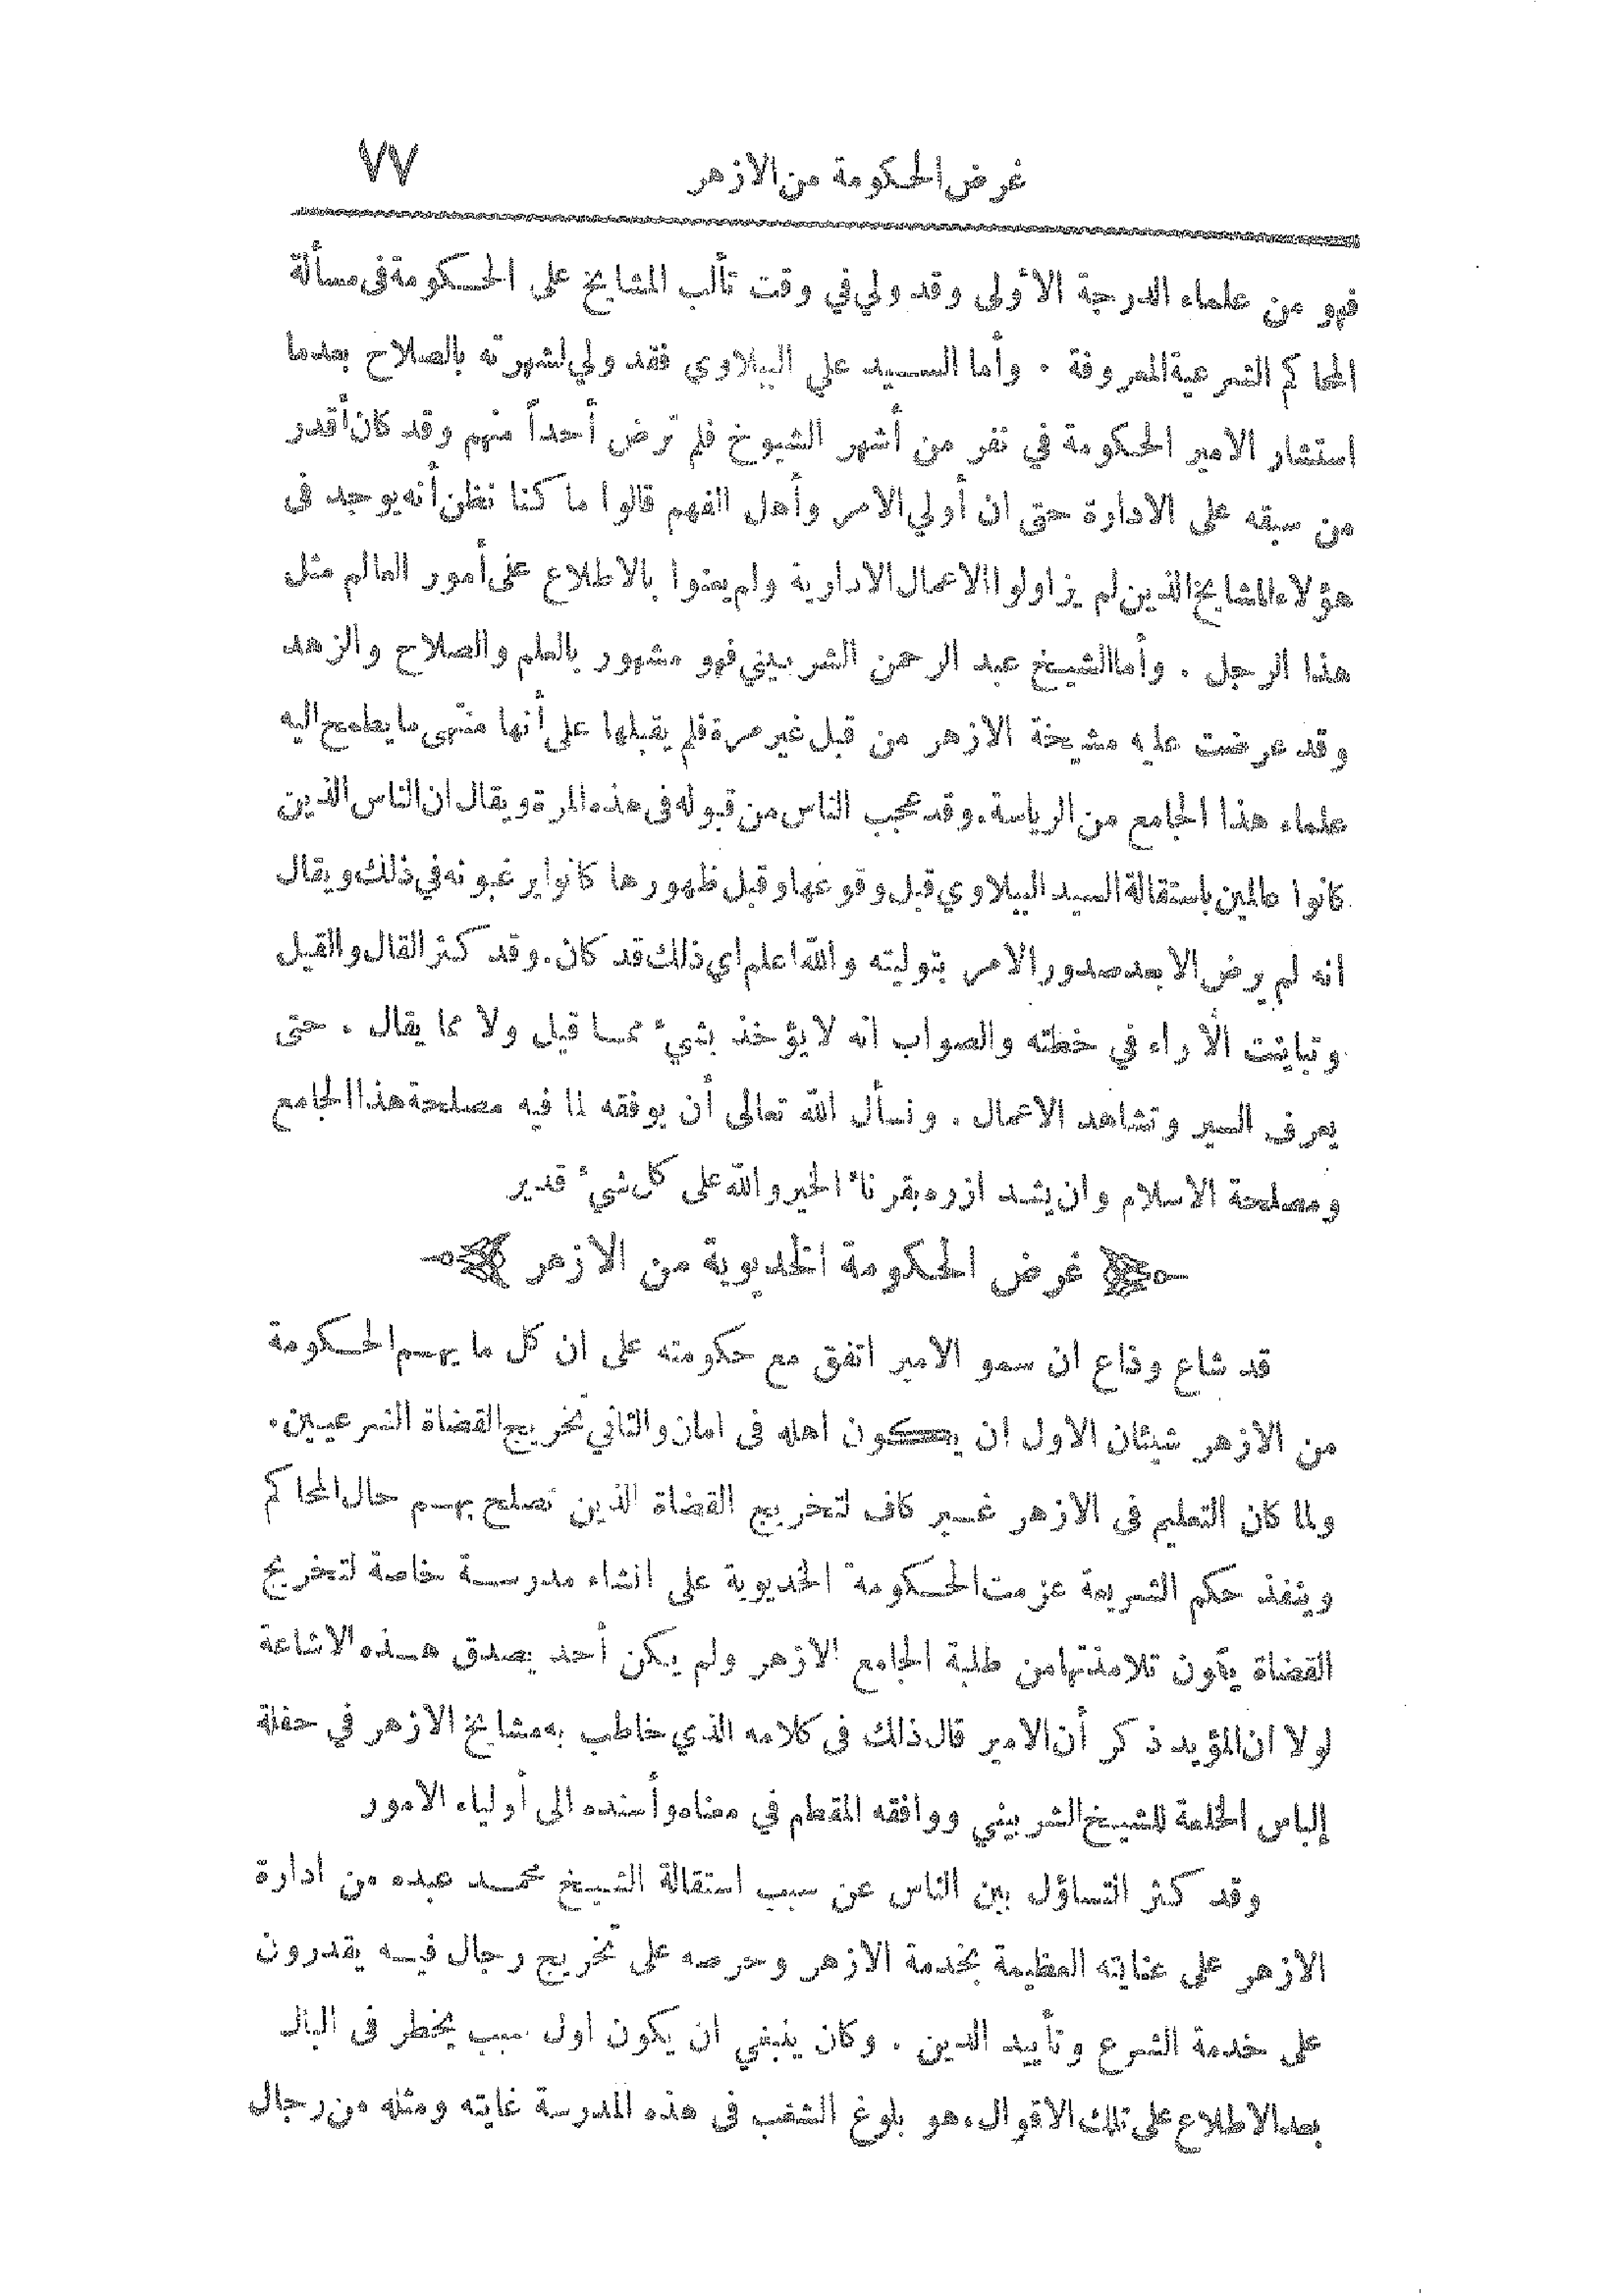 غرض الحكومة من الازهر ٧٧
فهو من علماء الدرجة الأولى وقد ولي في وقت تألب المشايخ على الحكومة فى مسألة
المحاكم الشرعية المعروفة . وأما السيد علي الببلاوي فقد ولي لشهرته بالصلاح بعدما
استشار الامير الحكومة في نفر من أشهر الشيوخ فلم ترض أحداً منهم وقد كان أقدر
من سبقه على الادارة حتى ان أولي الامر وأهل الفهم قالوا ما كنا نظن أنه يوجد فى
هؤلاء المشايخ الذين لم يزاولوا الاعمال الادارية ولم يعنوا بالاطلاع على أمور العالم مثل
هذا الرجل . وأما الشيخ عبد الرحمن الشربيني فهو مشهور بالعلم والصلاح والزهد
وقد عرضت عليه مشيخة الازهر من قبل غير مرة فلم يقبلها على أنها منتهى ما يطمح اليه
علماء هذا الجامع من الرياسة . وقد عجب الناس من قبوله فى هذه المرة ويقال ان الناس الذين
كانوا عالمين باستقالة السيد الببلاوي قبل وقوعها وقبل ظهورها كانوا يرغبونه في ذلك ويقال
انه لم يرض الا بعد صدور الامر بتوليته والله اعلم اي ذلك قد كان . وقد كثر القال والقيل
وتباينت الآراء في خطته والصواب انه لا يؤخذ بشيء مما قيل ولا مما يقال . حتى
يعرف السير وتشاهد الاعمال . ونسأل الله تعالى أن يوفقه لما فيه مصلحة هذا الجامع
ومصلحة الاسلام وان يشد ازره بقرناء الخير والله على كل شيء قدير
غرض الحكومة الخديوية من الازهر
قد شاع وذاع ان سمو الامير اتفق مع حكومته على ان كل ما يهم الحكومة
من الازهر شيئان الاول ان يكون اهله فى امان والثاني تخريج القضاة الشرعيين .
ولما كان التعليم فى الازهر غير كاف لتخريج القضاة الذين تصلح بهم حال المحاكم
وينفذ حكم الشريعة عزمت الحكومة الخديوية على انشاء مدرسة خاصة لتخريج
القضاة يكون تلامذتها من طلبة الجامع الازهر ولم يكن أحد يصدق هذه الاشاعة
لولا ان المؤيد ذكر أن الامير قال ذلك فى كلامه الذي خاطب به مشايخ الازهر في حفلة
إلباس الخلعة للشيخ الشربيني ووافقه المقطم في معناه وأسنده الى أولياء الامور
وقد كثر التساؤل بين الناس عن سبب استقالة الشيخ محمد عبده من ادارة
الازهر على عنايته العظيمة بخدمة الازهر وحرصه على تخريج رجال فيه يقدرون
على خدمة الشرع وتأييد الدين . وكان ينبغي ان يكون اول سبب يخطر فى البال
بعد الاطلاع على تلك الاقوال ، هو بلوغ الشغب فى هذه المدرسة غايته ومثله من رجال